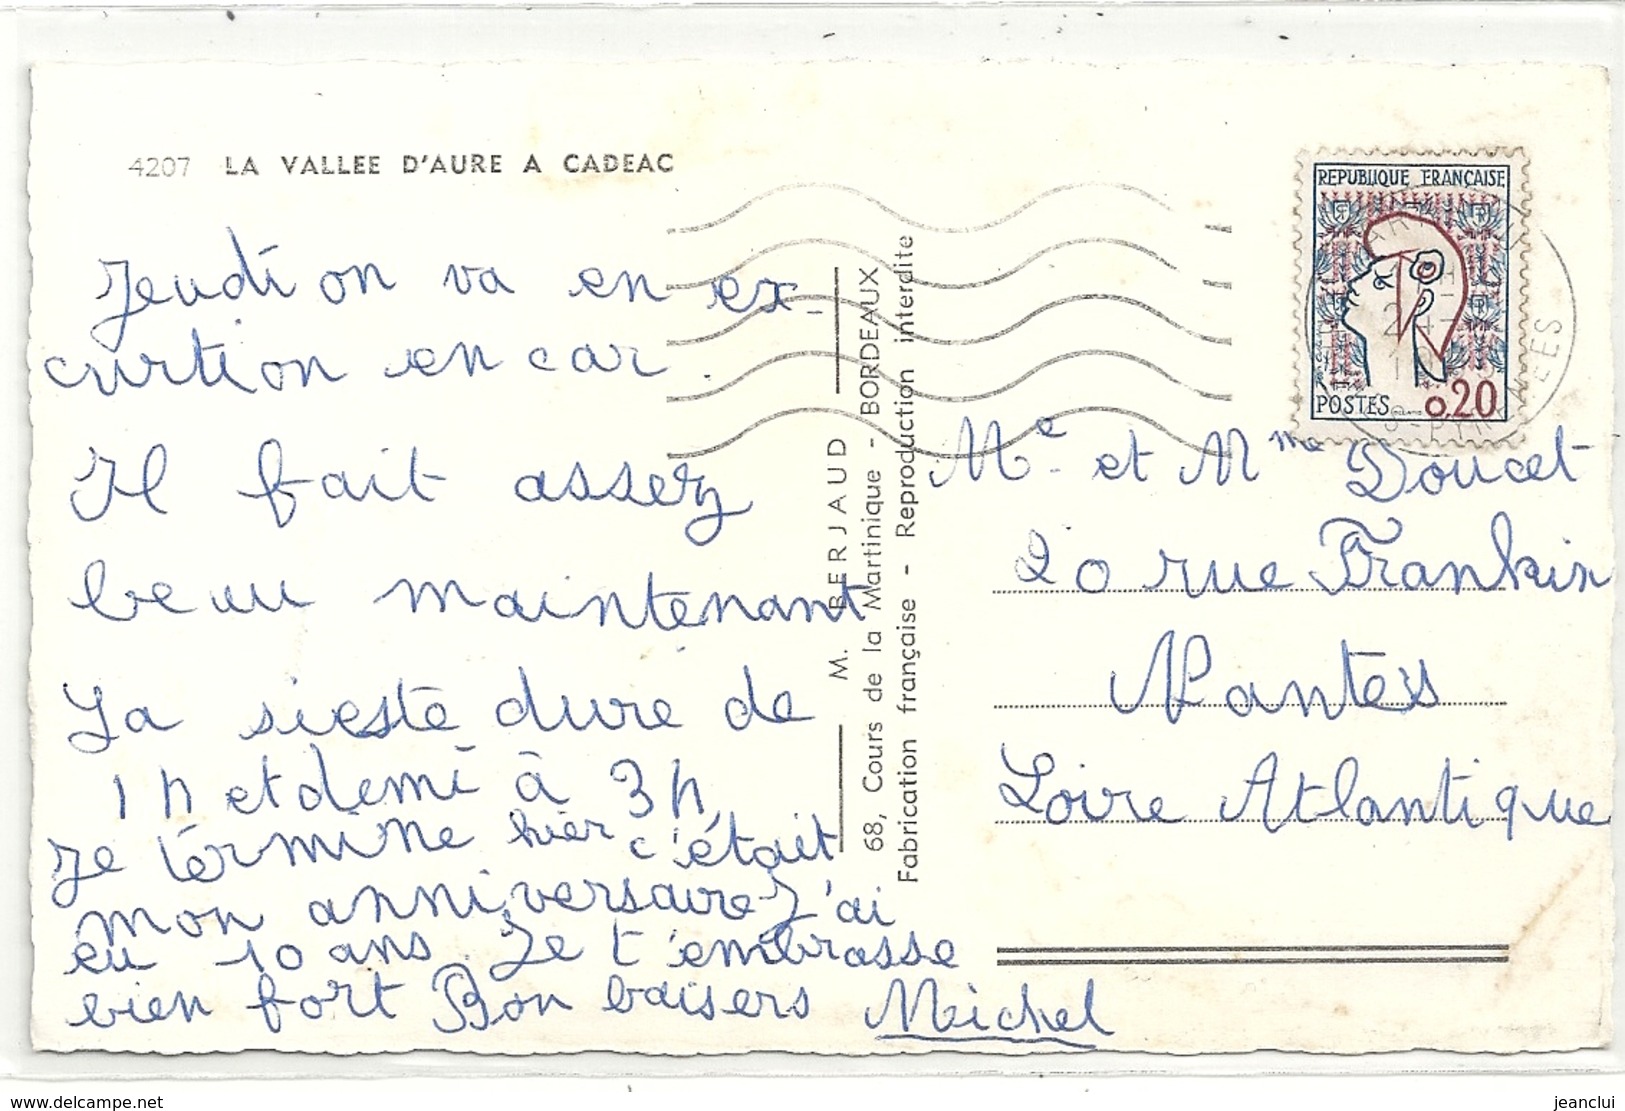 4207 LA VALLEE D'AURE A CADEAC
Jeudi on va en ex-
curtion en car.
Il fait assez
beau maintenant
La sieste dure de
1 h et demi à 3 h,
Je termine hier c'était
mon anniversaire J'ai
eu 10 ans. Je t'embrasse
bien fort Bon baisers Michel
M. BERJAUD
68, Cours de la Martinique - BORDEAUX
Fabrication française - Reproduction interdite
REPUBLIQUE FRANÇAISE
POSTES 0,20
Me et Mme Doucet
20 rue Frankin
Nantes
Loire Atlantique
www.delcampe.net
jeanclui